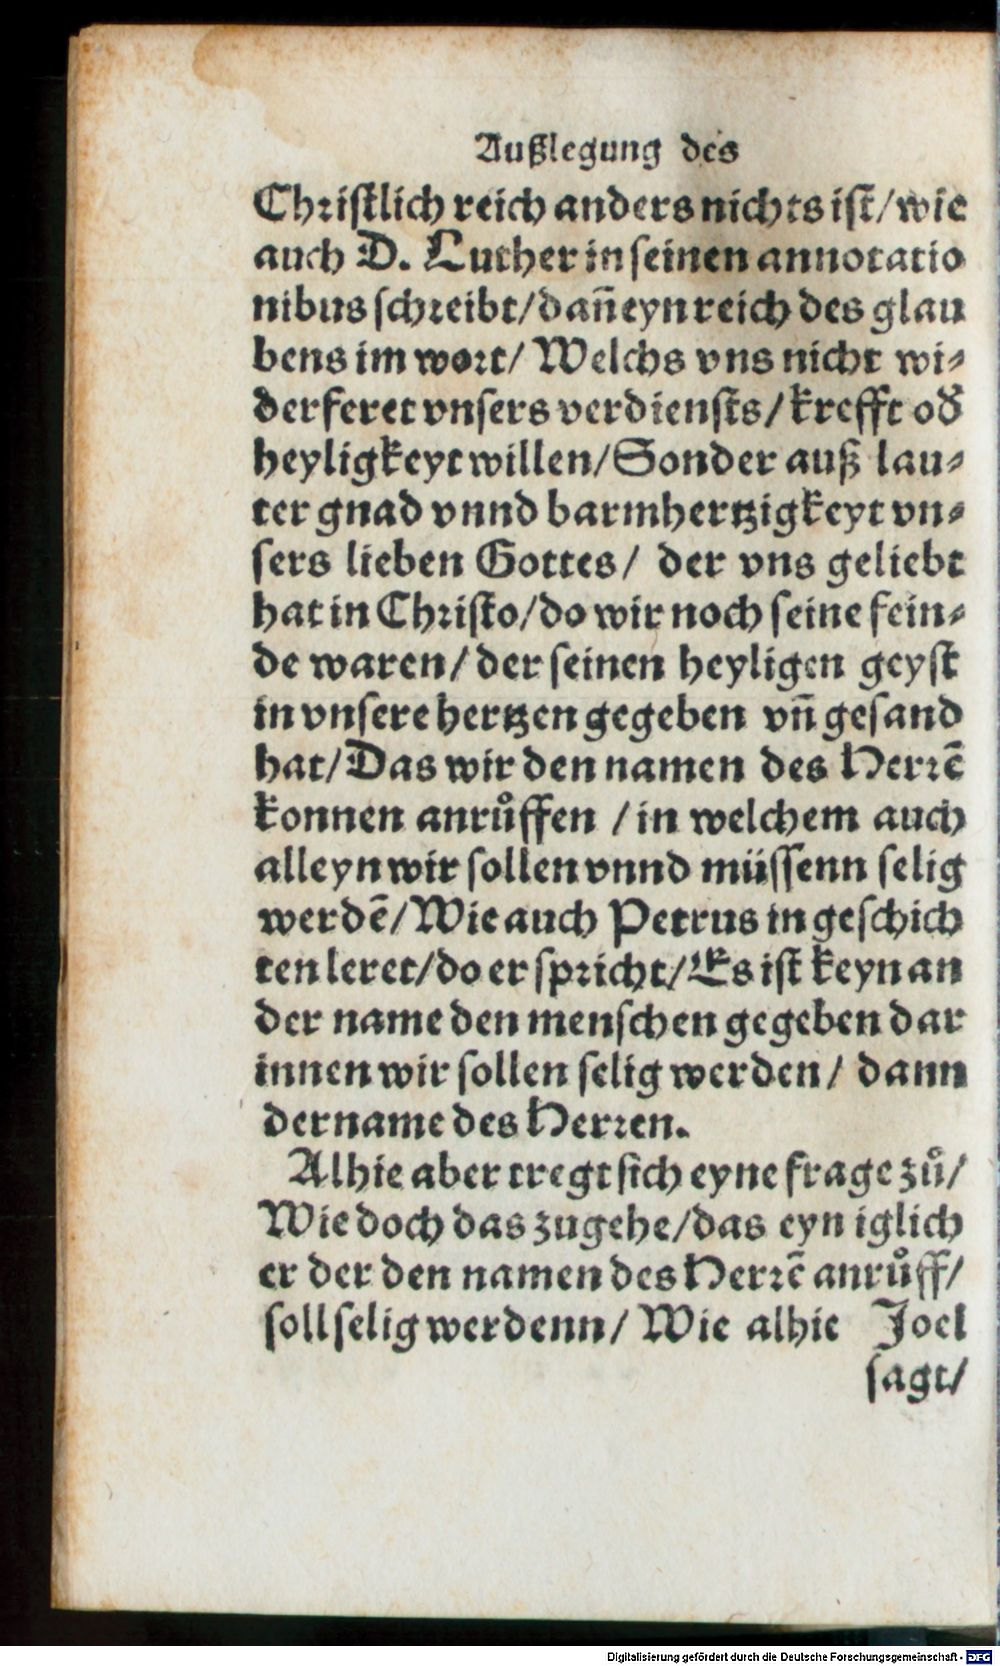 Außlegung des
Christlich reich anders nichts ist/wie
auch D. Luther in seinen annotatio
nibus schreibt/dañ eyn reich des glau
bens im wort/ Welchs vns nicht wi⸗
derferet vnsers verdiensts/krefft od̕
heyligkeyt willen/Sonder auß lau⸗
ter gnad vnnd barmhertzigkeyt vn⸗
sers lieben Gottes/ der vns geliebt
hat in Christo/do wir noch seine fein⸗
de waren/der seinen heyligen geyst
in vnsere hertzen gegeben vñ gesand
hat/Das wir den namen des Herrē
konnen anrůffen /in welchem auch
alleyn wir sollen vnnd müssenn selig
werdē/Wie auch Petrus in geschich
ten leret/do er spricht/Es ist keyn an
der name den menschen gegeben dar
innen wir sollen selig werden/ dann
der name des Herren.
Alhie aber tregt sich eyne frage zů/
Wie doch das zugehe/das eyn iglich
er der den namen des Herrē anrůff/
soll selig werdenn/ Wie alhie Joel
sagt/
Digitalisierung gefördert durch die Deutsche Forschungsgemeinschaft - DFG